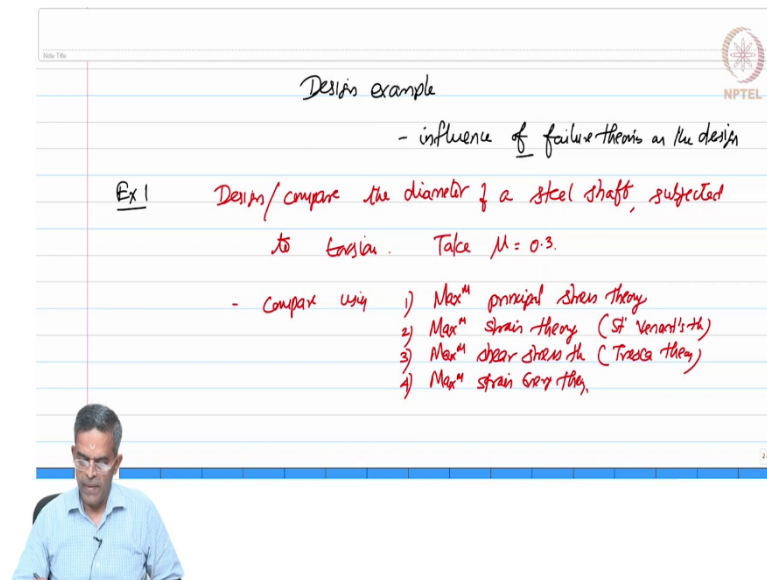 Note Title
NPTEL
Design example
- influence of failure theories on the design
Ex 1 Design/compare the diameter of a steel shaft, subjected
to torsion. Take μ = 0.3.
- Compare using 1) Maxᵐ principal stress theory
2) Maxᵐ strain theory (St Venant's th)
3) Maxᵐ shear stress th (Tresca theory)
4) Maxᵐ strain energy theory
2